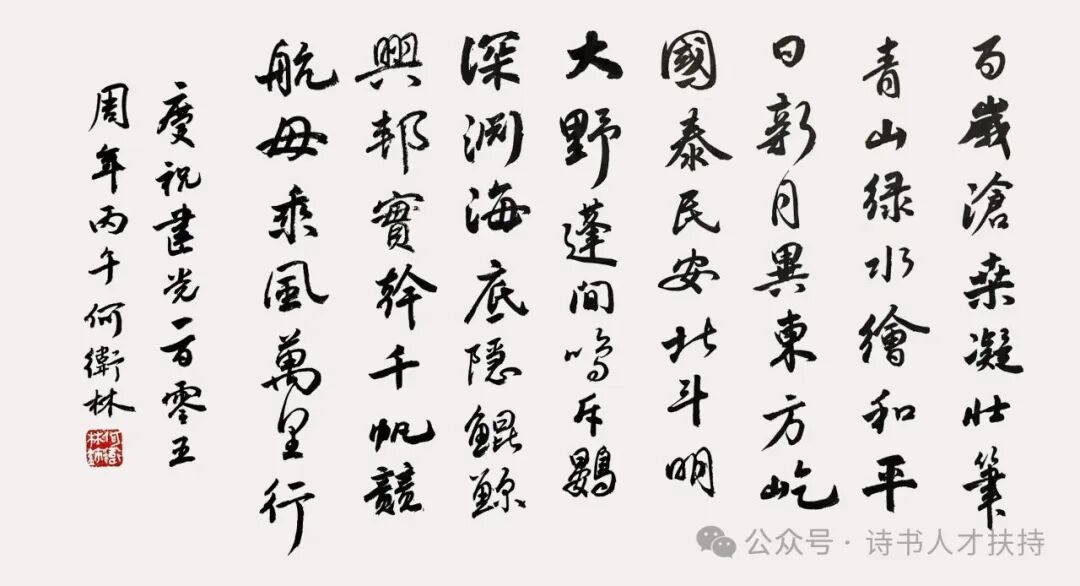 百歲滄桑凝壮筆
青山绿水繪和平
日新月異東方屹
國泰民安北斗明
大野蓬间鸣斥鷃
深渊海底隐鲲鲸
興邦實幹千帆競
航母乘風萬里行
慶祝建党一百零五
周年丙午何衛林
公众号·诗书人才扶持